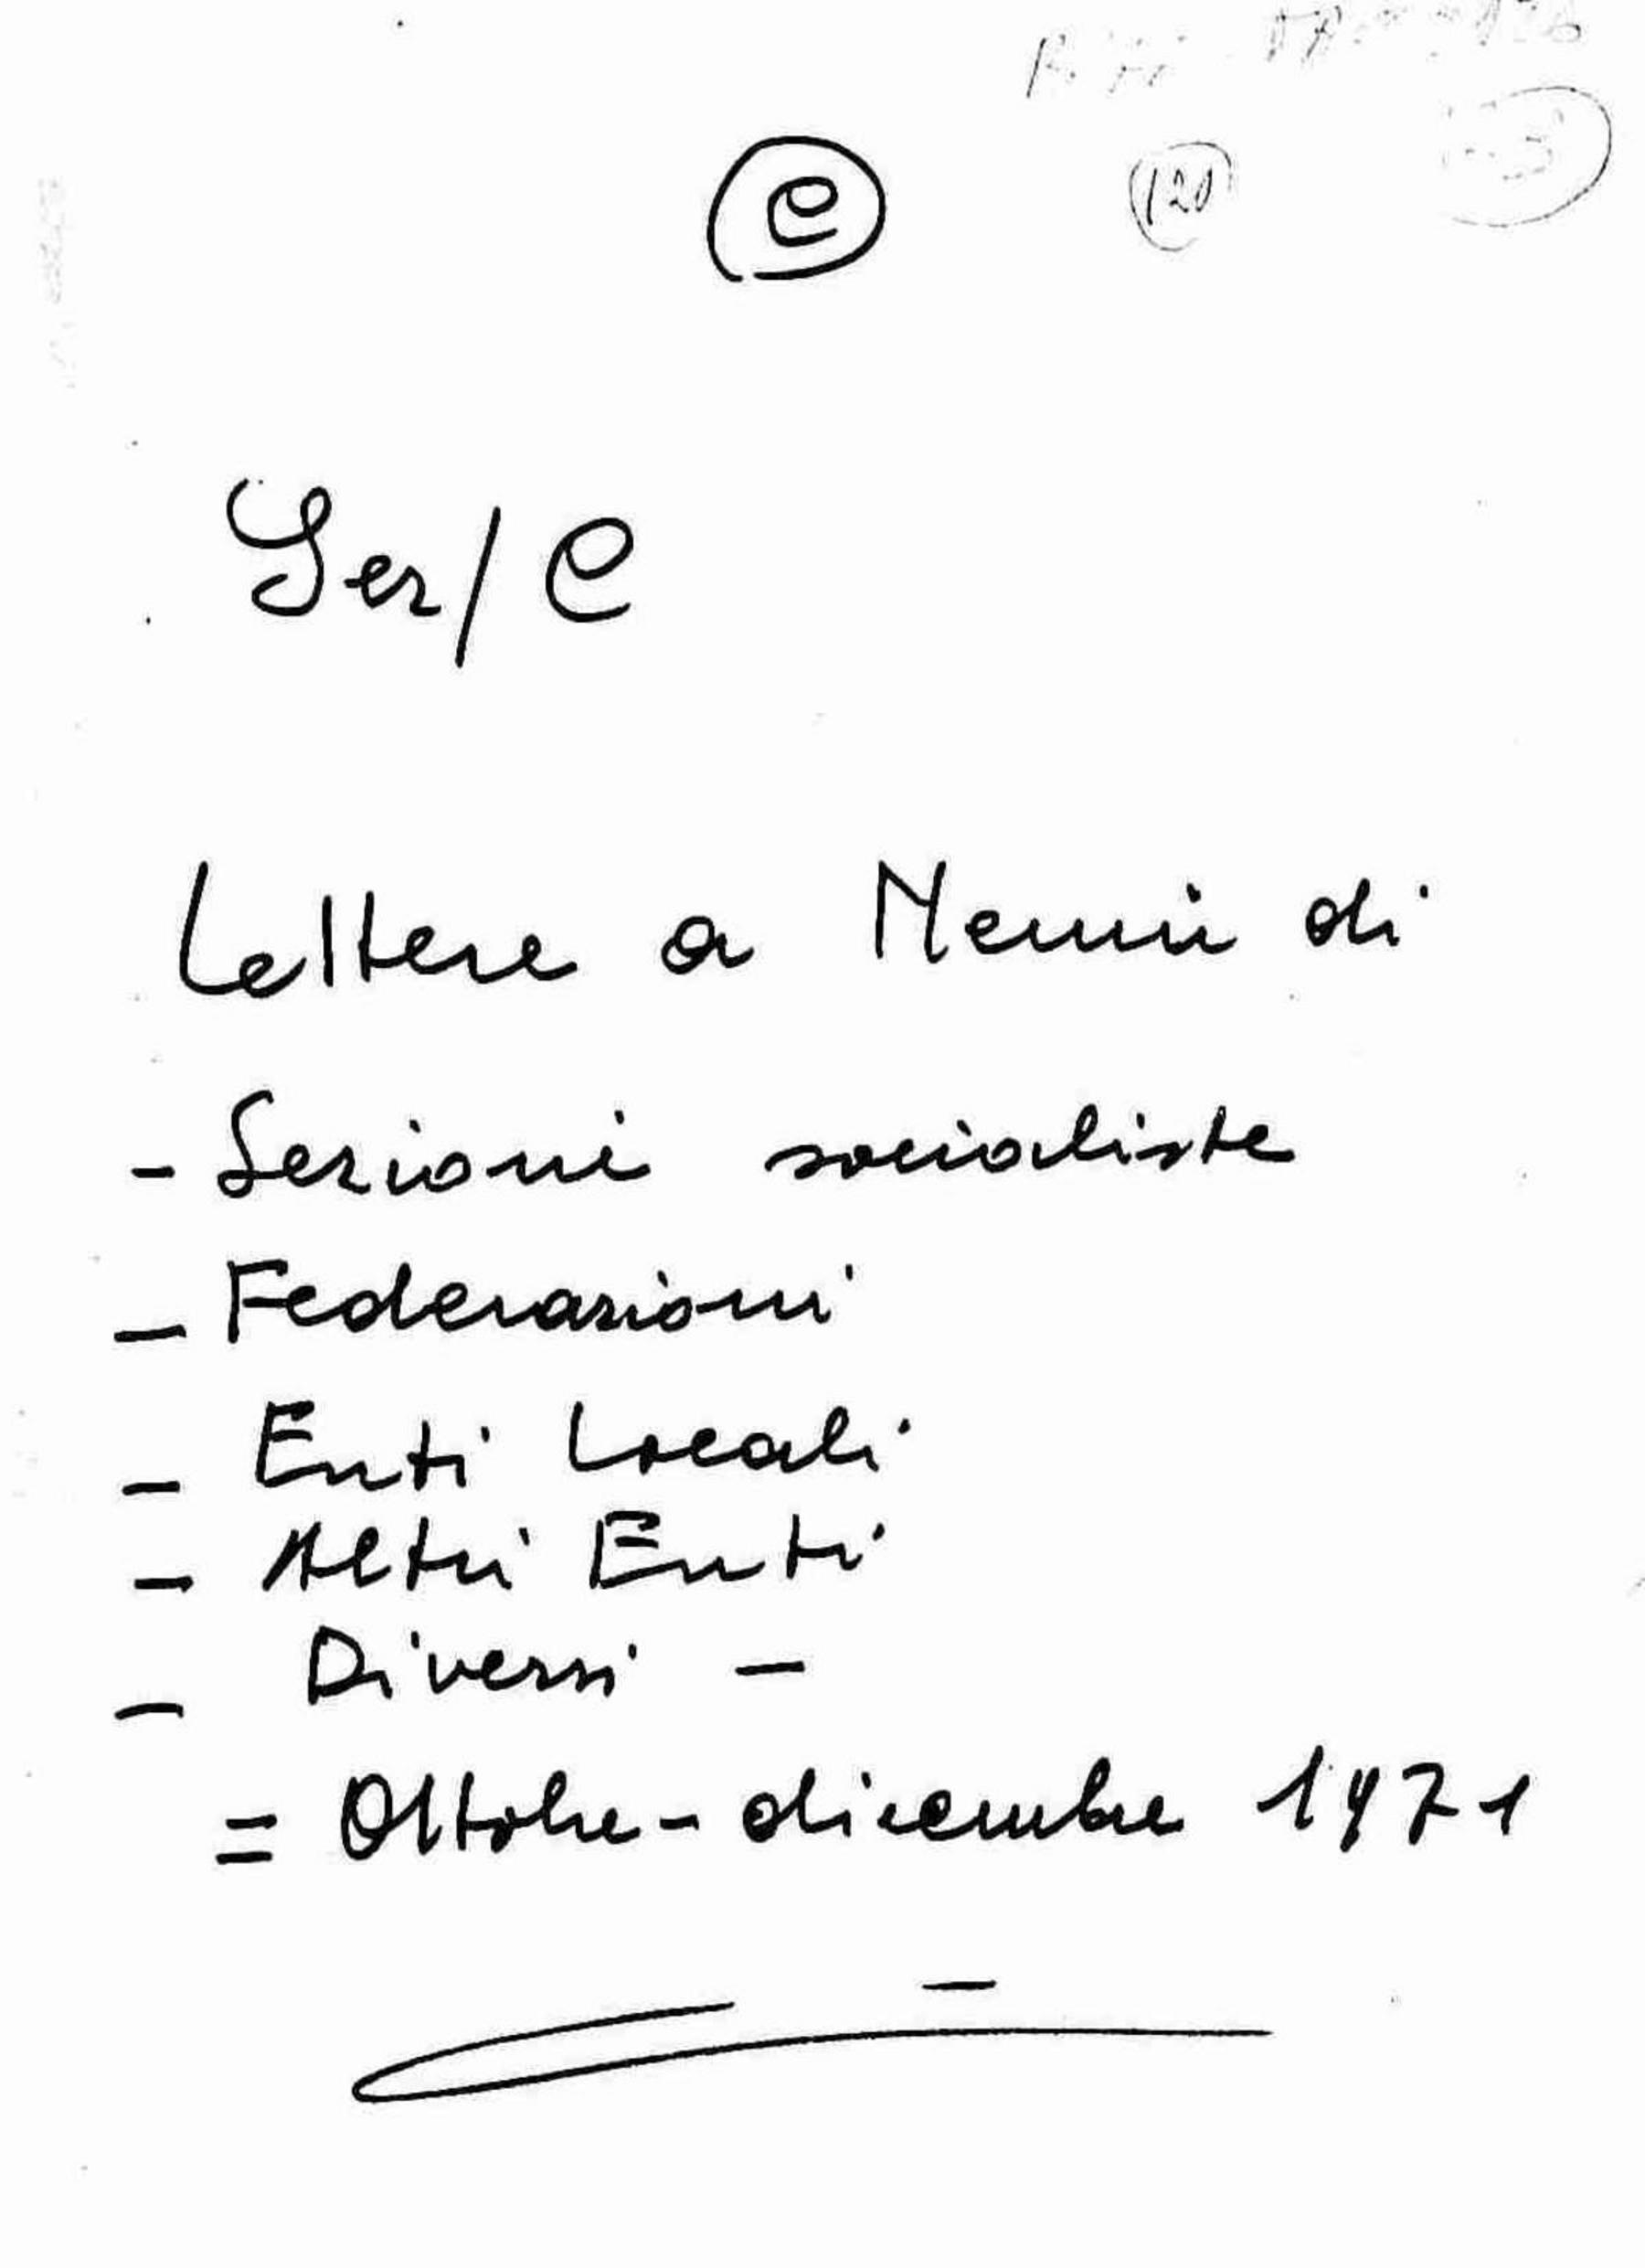 C
120
Ser/C
Lettere a Nenni di
- Sezioni socialiste
- Federazioni
- Enti Locali
- Altri Enti
- Diversi -
= Ottobre - dicembre 1971